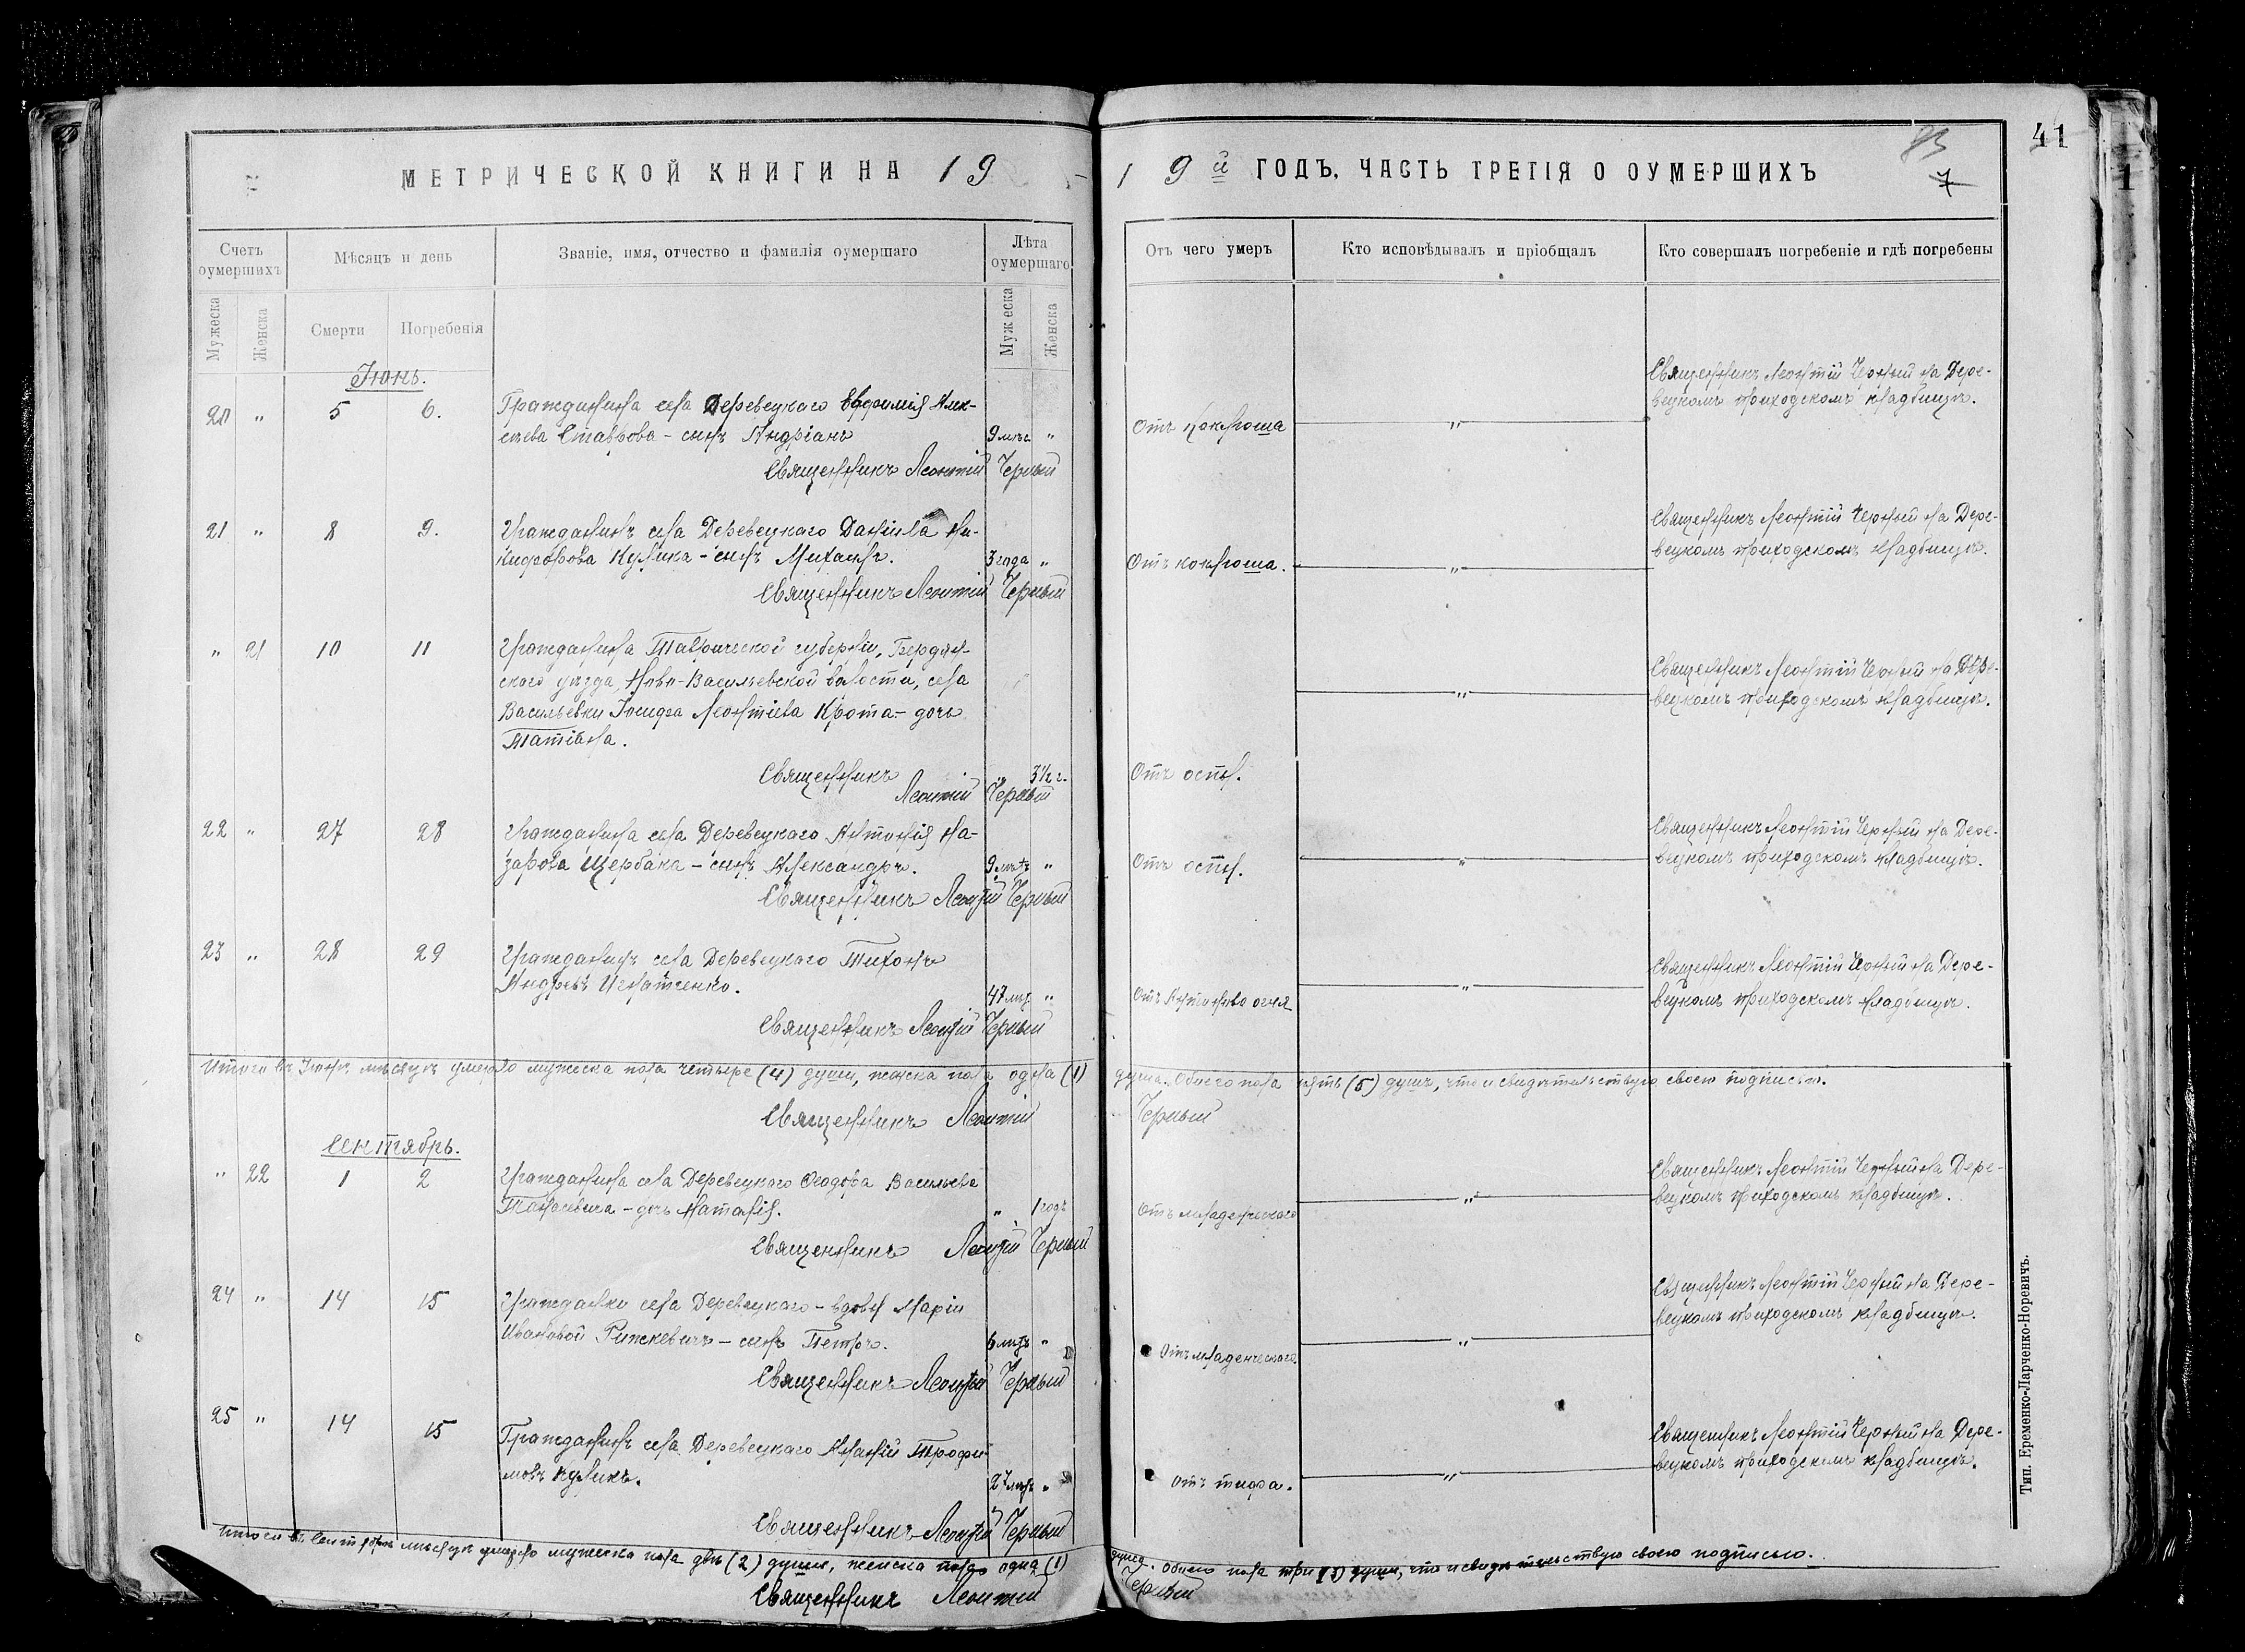 МЕТРИЧЕСКОЙ КНИГИ НА 19
Счетъ оумершихъ
Мѣсяцъ и день
Званіе, имя, отчество и фамилія оумершаго
Лѣта оумершаго
Мужеска
Женска
Смерти
Погребенія
Мужеска
Женска
Іюнь.
20 " 5 6. Гражданина села Деревецкаго Евфимія Алек-
сѣева Ставрова - сынъ Андріанъ 9 лѣтъ "
Священникъ Леонтій Черный
21 " 8 9. Гражданинъ села Деревецкаго Даніила Ни-
кифорова Кулика - сынъ Михаилъ. 3 года "
Священникъ Леонтій Черный
" 21 10 11 Гражданина Таврической губерніи, Бердян-
скаго уѣзда, Ново-Васильевской волости, села
Васильевки Іосифа Леонтіева Крота - дочь
Татіана.
Священникъ " 3½ г.
Леонтій Черный
22 " 27 28 Гражданина села Деревецкаго Антонія На-
зарова Щербака - сынъ Александръ. 9 лѣтъ "
Священникъ Леонтій Черный
23 " 28 29 Гражданинъ села Деревецкаго Тихонъ
Андреевъ Игнатченко. 47 лѣтъ "
Священникъ Леонтій Черный
Итого въ Іюнѣ мѣсяцѣ умерло мужеска пола четыре (4) души, женска пола одна (1)
Священникъ Леонтій
Сентябрь.
" 22 1 2 Гражданина села Деревецкаго Ѳеодора Васильева
Танасевича - дочь Наталія. " 1 годъ
Священникъ Леонтій Черный
24 " 14 15 Гражданки села Деревецкаго - вдовы Маріи
Ивановой Рижкевичъ - сынъ Петръ. 6 лѣтъ "
Священникъ Леонтій Черный
25 " 14 15 Гражданинъ села Деревецкаго Ананій Трофи-
мовъ Куликъ. 27 лѣтъ "
Священникъ Леонтій Черный
Итого въ Сентябрѣ мѣсяцѣ умерло мужеска пола двѣ (2) души, женска пола одна (1)
Священникъ Леонтій
41
7
19 й ГОДЪ, ЧАСТЬ ТРЕТІЯ О ОУМЕРШИХЪ
Отъ чего умеръ
Кто исповѣдывалъ и пріобщалъ
Кто совершалъ погребеніе и гдѣ погребены
Священникъ Леонтій Черный на Дере-
вецкомъ приходскомъ кладбищѣ.
Отъ коклюша "
Священникъ Леонтій Черный на Дере-
вецкомъ приходскомъ кладбищѣ.
Отъ коклюша. "
Священникъ Леонтій Черный на Дере-
" вецкомъ приходскомъ кладбищѣ.
Отъ оспы.
Священникъ Леонтій Черный на Дере-
Отъ оспы. " вецкомъ приходскомъ кладбищѣ.
Священникъ Леонтій Черный на Дере-
Отъ Антонова огня " вецкомъ приходскомъ кладбищѣ.
душа. Обоего пола пять (5) душъ, что и свидѣтельствую своею подписью.
Черный
Священникъ Леонтій Черный на Дере-
Отъ младенческаго " вецкомъ приходскомъ кладбищѣ.
Священникъ Леонтій Черный на Дере-
вецкомъ приходскомъ кладбищѣ.
Отъ младенческаго. "
Священникъ Леонтій Черный на Дере-
вецкомъ приходскомъ кладбищѣ.
Отъ тифа. "
душа. Обоего пола три (3) души, что и свидѣтельствую своею подписью.
Черный
Тип. Еременко-Ларченко-Норевичъ.